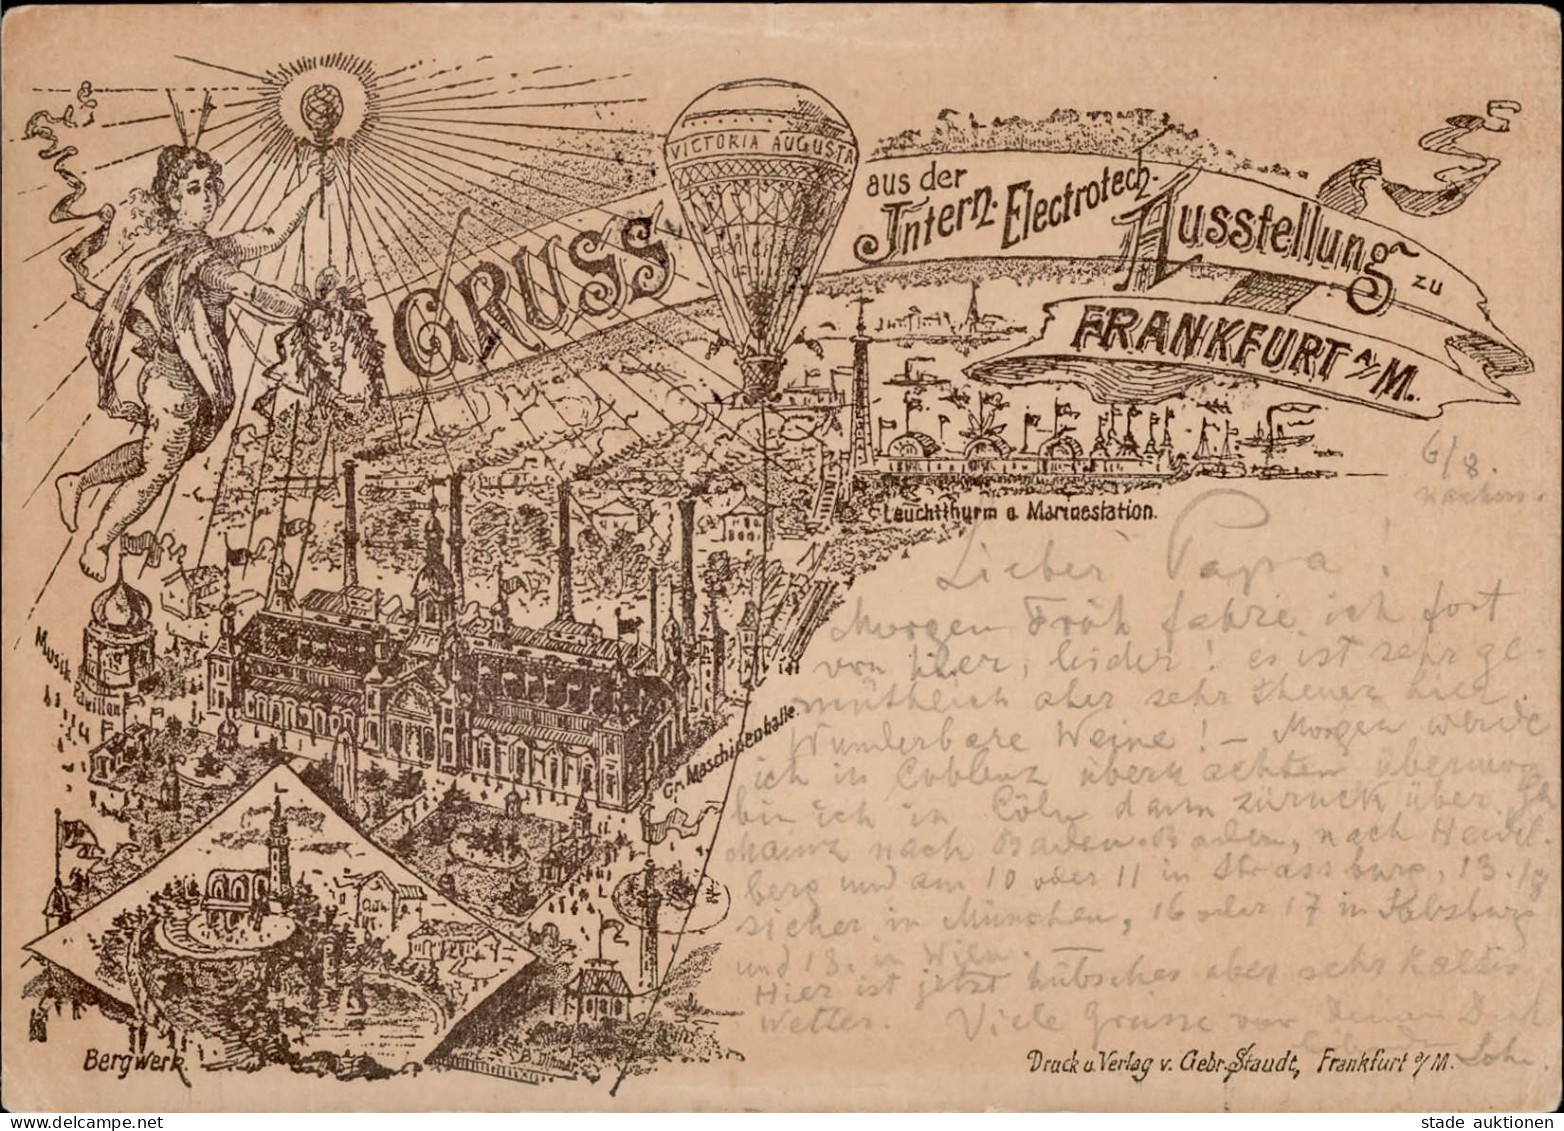 GRUSS
VICTORIA AUGUSTA
aus der
Intern. Electrotech.
Ausstellung zu
FRANKFURT A/M.
Leuchtthurm u. Marinestation.
Musik Pavillon
Gr. Maschinenhalle.
Bergwerk.
6/8.
Lieber Papa!
Morgen Früh fahre ich fort
von hier, leider! es ist sehr ge-
müthlich aber sehr theuer hier.
Wunderbare Weine! – Morgen werde
ich in Coblenz übernachten übermorg
bin ich in Cöln dann zurück über
Mainz nach Baden-Baden, nach Heidel-
berg und am 10 oder 11 in Strassburg, 13./8
sicher in München, 16 oder 17 in Salzburg
und 18. in Wien.
Hier ist jetzt hübsches aber sehr kaltes
Wetter. Viele Grüsse von Deinem Dich
Sohn.
Druck u. Verlag v. Gebr. Staudt, Frankfurt a/M.
stade auktionen